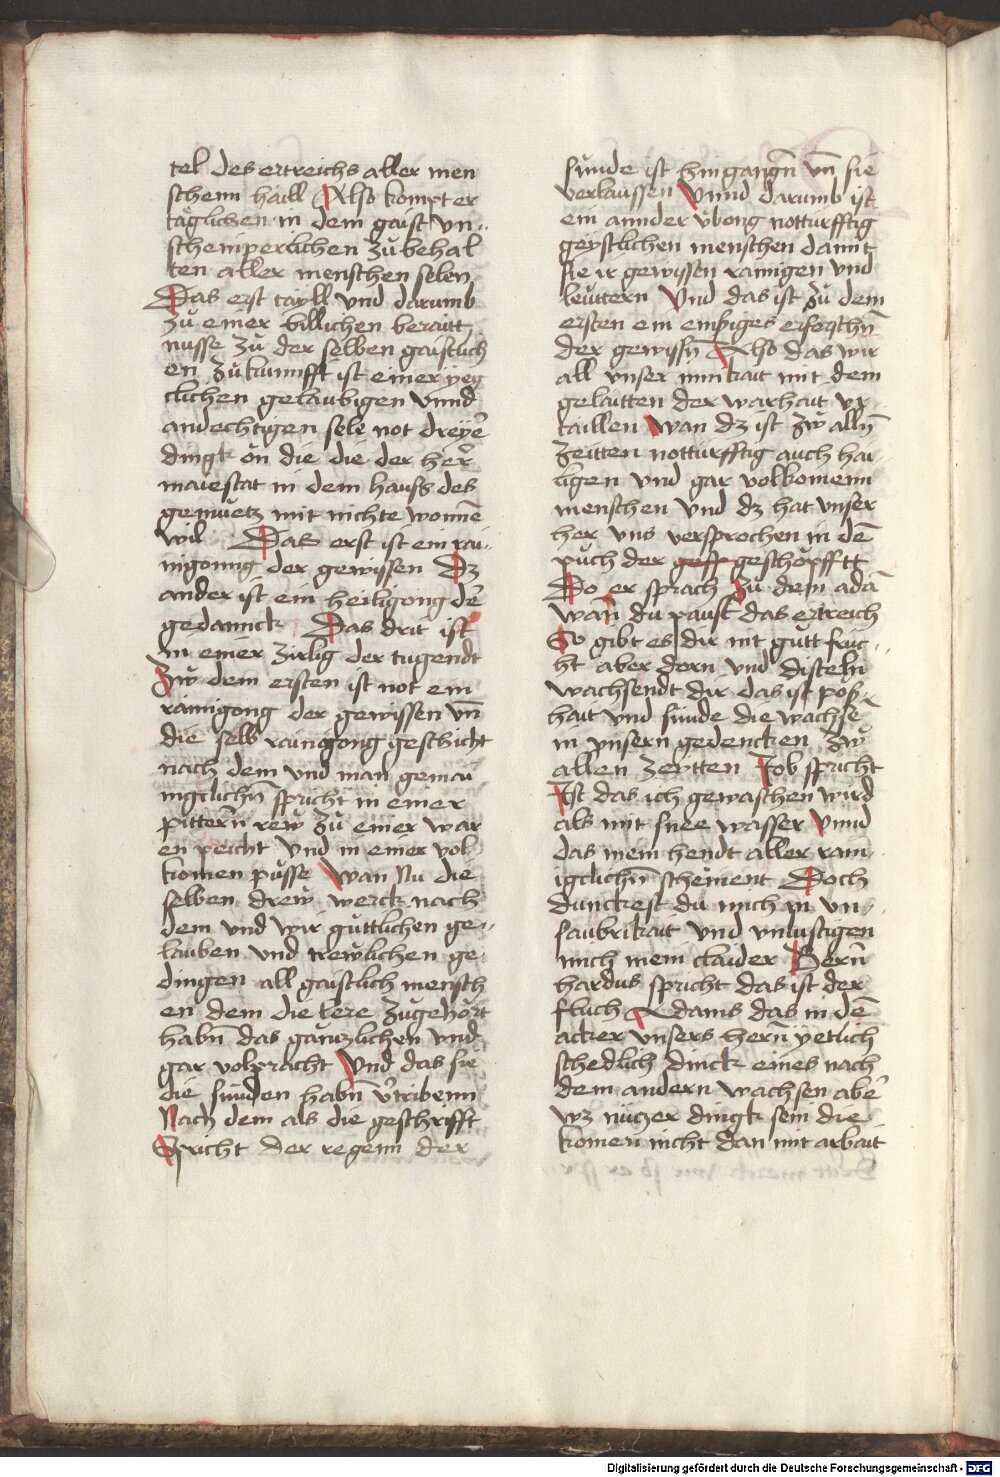 tel des ertreichs aller men
schenn haill Also kompt er
täglichen in dem gaist vn„
schemperlichen zu behal
ten aller menschen selen
Das erst tayll vnd darumb
zu einer billichen beraitt
nusse zu der selben gaistlich
en zukunnfft ist einer yeg
clichen gelaubigen vnnd
andechtigen sele not dreyer̄
dingk on die die der herr
maiestat in dem hauss des
gemuetz mit nichte wonnē
wil Das erst ist ein rai„
nigonng der gewissen Dz
ander ist ein heiligong der̄
gedannck Das drit ist
in einer zirlig der tugendt
Zw dem ersten ist not ein
rainigong der gewissen vn̄
die selb rainigong geschicht
nach dem vnd man gemai
nigclichn̄ spricht in einer
pittern̄ rew zu einer war
en peicht vnd in einer vol
komen pusse Wan Nu die
selben drew werck nach
dem vnd wir guttlichen ge„
lauben vnd trewlichen ge
dingen all gaistlich mensch
en dem die lere zugehört
habn̄ das gantzlichen vnd
gar volpracht Vnd das sie
die sunden habn̄ v̄tribenn
Nach dem als die geschrifft
Spricht der regenn der
sunde ist hingangn̄ vn̄ sie
verlaussen Vnnd darumb ist
ein annder übong notturfftig
geystlichen menschen damit
sie ir gewissen rainigen vnd
leuttern Vnd das ist zu dem
ersten ein emsiges erforschn̄
der gewissn̄ Also das wir
all vnser innikait mit dem
gelaitten der warhait vr
taillen wan dz ist zw alln̄
zeitten notturfftig auch hai
ligen vnd gar volkomenn
menschen vnd dz hat vnser
her vns versprochen in dē
puch der gesch geschöpfftt
Do er sprach zu dem adā
wan̄ du paust das ertreich
So gibt es dir nit gutt fruc„
ht aber dorn vnd disteln
wachsendt dir das ist poß
hait vnd sünde die wachsē
in vnsern gedencken zw
allen zeytten Job spricht
Ist das ich gewaschen wird
als mit snee wasser Vnnd
das mein hendt aller rain
igclichn̄ scheinent Doch
dunckest du mich in vn„
saubrikait vnd vnlustigen
mich mein claider Bern̄
hardus spricht das ist der
fluch Adams das in dē
acker vnsers hern̄ yetlich
schedlich dinck eines nach
dem andern wachsen aber̄
wz nützer dingk sein die
komen nicht dan mit arbait
Digitalisierung gefördert durch die Deutsche Forschungsgemeinschaft - DFG